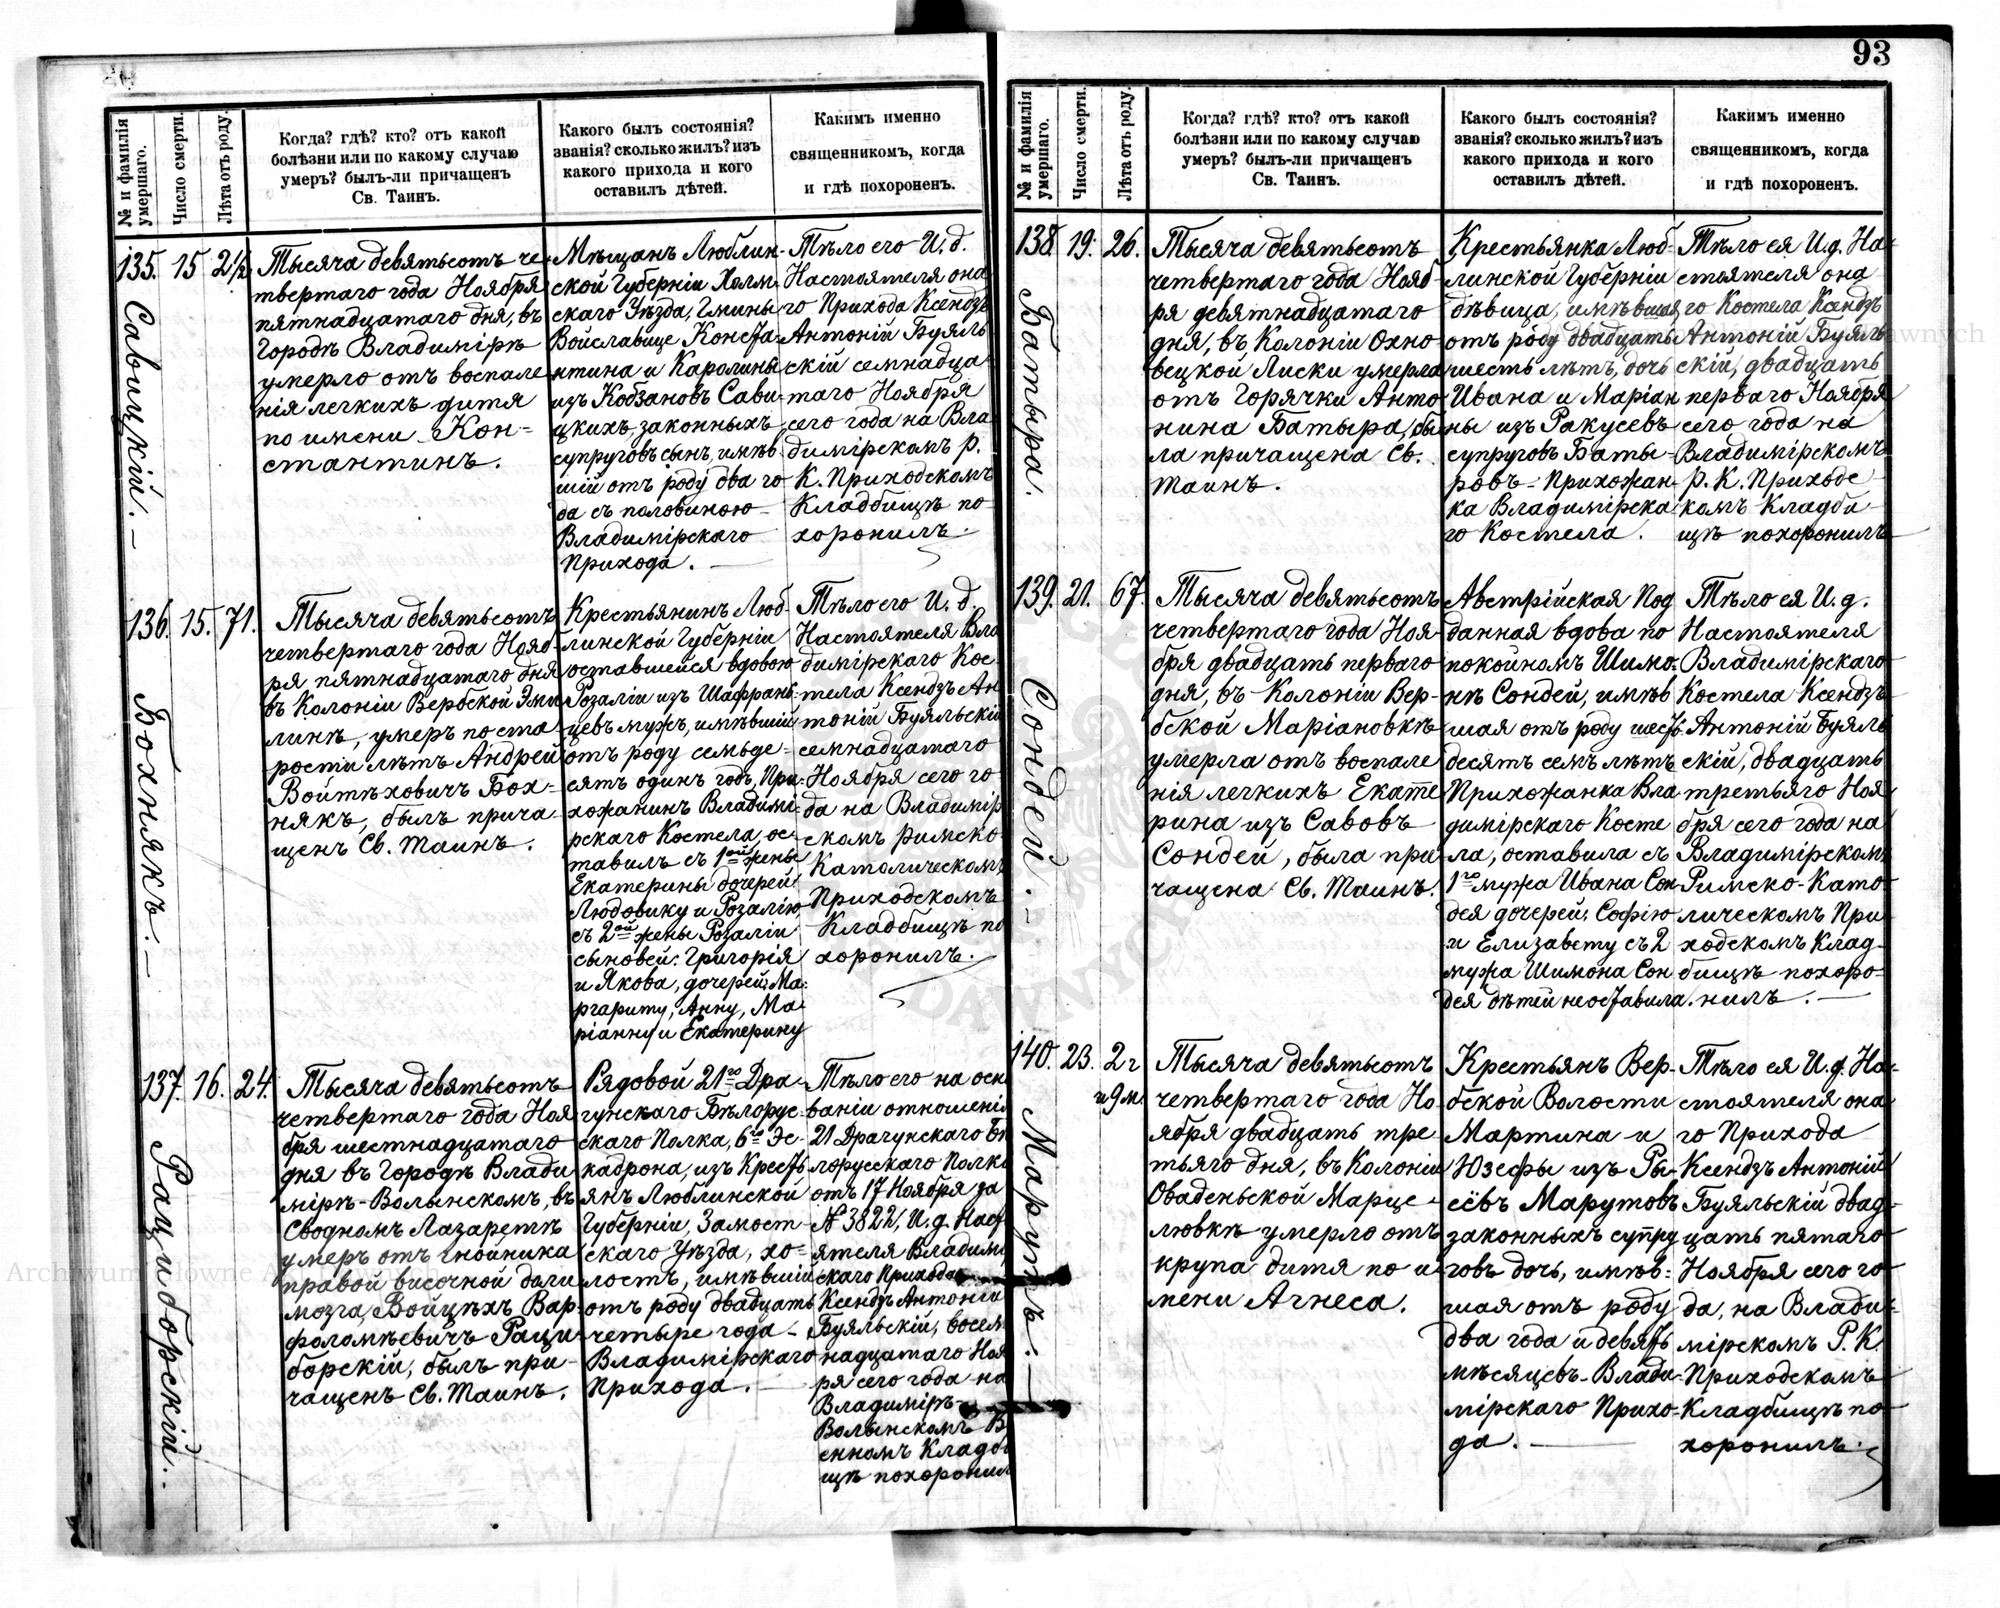 93
№ и фамилія умершаго.
Число смерти.
Лѣта отъ роду.
Когда? гдѣ? кто? отъ какой
болѣзни или по какому случаю
умеръ? былъ-ли причащенъ
Св. Таинъ.
Какого былъ состоянія?
званія? сколько жилъ? изъ
какого прихода и кого
оставилъ дѣтей.
Какимъ именно
священникомъ, когда
и гдѣ похороненъ.
135.
Савицкій.
15
2½
Тысяча девятьсотъ че-
твертаго года Ноября
пятнадцатаго дня, въ
Городѣ Владимірѣ
умерло отъ воспале
нія легкихъ дитя
по имени Кон=
стантинъ.
Мѣщанъ Люблин-
ской Губерніи Холм-
скаго Уѣзда, Гмины
Войславице Конста-
нтина и Каролины
изъ Кобзановъ Сави-
цкихъ законныхъ
супруговъ сынъ, имѣв
шій отъ роду два го
да съ половиною
Владимірскаго
Прихода.
Тѣло его И. д.
Настоятеля она
го Прихода Ксендзъ
Антоній Буяль
скій семнадца
таго Ноября
сего года на Вла
димірскомъ р.
К. Приходскомъ
Кладбищѣ по-
хоронилъ.
136.
Бохнякъ.
15.
71.
Тысяча девятьсотъ
четвертаго года Нояб-
ря пятнадцатаго дня
въ Колоніи Вербской Эми
линѣ, умеръ по ста-
рости лѣтъ Андрей
Войтѣховичъ Бох-
някъ, былъ прича-
щенъ Св. Таинъ.
Крестьянинъ Люб-
линской Губерніи
оставшейся вдовою
Розаліи изъ Шафран-
цевъ мужъ, имѣвшій
отъ роду семьде-
сятъ одинъ годъ, При-
хожанинъ Владимі-
рскаго Костела, ос-
тавилъ съ 1ой жены
Екатерины дочерей:
Людовику и Розалію,
съ 2ой жены Розаліи
сыновей: Григорія
и Якова, дочерей: Ма-
ргариту, Анну, Ма-
ріанну и Екатерину
Тѣло его И. д.
Настоятеля Вла
димірскаго Кос-
тела Ксендзъ Ан
тоній Буяльскій
семнадцатаго
Ноября сего го
да на Владимір
скомъ Римско-
Католическомъ
Приходскомъ
Кладбищѣ по
хоронилъ.
137.
Рациборскій.
16.
24.
Тысяча девятьсотъ
четвертаго года Ноя
бря шестнадцатаго
дня въ Городѣ Влади
мірѣ-Волынскомъ, въ
Сводномъ Лазаретѣ
умеръ отъ гнойника
правой височной доли
мозга, Войцѣхъ Вар-
фоломѣевичъ Раци-
борскій, былъ при-
чащенъ Св. Таинъ.
Рядовой 21го Дра-
гунскаго Бѣлорус-
скаго Полка, 6го Эс-
кадрона, изъ Кресть
янъ Люблинской
Губерніи, Замост-
скаго Уѣзда, хо-
лостъ, имѣвшій
отъ роду двадцать
четыре года -
Владимірскаго
Прихода.
Тѣло его на осно
ваніи отношенія
21 Драгунскаго Бѣ
лорусскаго Полка
отъ 17 Ноября за
№ 3822, И. д. Наст
оятеля Владимір
скаго Прихода
Ксендзъ Антоній
Буяльскій, восем
надцатаго Нояб
ря сего года на
Владимірѣ-
Волынскомъ Во
енномъ Кладби
щѣ похоронилъ
№ и фамилія умершаго.
Число смерти.
Лѣта отъ роду.
Когда? гдѣ? кто? отъ какой
болѣзни или по какому случаю
умеръ? былъ-ли причащенъ
Св. Таинъ.
Какого былъ состоянія?
званія? сколько жилъ? изъ
какого прихода и кого
оставилъ дѣтей.
Какимъ именно
священникомъ, когда
и гдѣ похороненъ.
138.
Батыра.
19.
26.
Тысяча девятьсотъ
четвертаго года Нояб
ря девятнадцатаго
дня, въ Колоніи Охно-
вецкой Лиски умерла
отъ Горячки Анто-
нина Батыра, бы
ла причащена Св.
Таинъ.
Крестьянка Люб-
линской Губерніи
дѣвица, имѣвшая
отъ роду двадцать
шесть лѣтъ, дочь
Ивана и Маріан
ны изъ Ракусевъ
супруговъ Баты-
ровъ - Прихожан-
ка Владимірска
го Костела.
Тѣло ея И. д. На-
стоятеля она
го Костела Ксендзъ
Антоній Буяль
скій, двадцать
перваго Ноября
сего года на
Владимірскомъ
Р. К. Приходс-
комъ Кладби-
щѣ похоронилъ
139.
Сондей.
21.
67.
Тысяча девятьсотъ
четвертаго года Ноя-
бря двадцать перваго
дня, въ Колоніи Вер-
бской Маріановкѣ
умерла отъ воспале
нія легкихъ Екате
рина изъ Савовъ
Сондей, была при
чащена Св. Таинъ.
Австрійская Под
данная вдова по
покойномъ Шимо-
нѣ Сондей, имѣв
шая отъ роду шесть
десятъ семь лѣтъ
Прихожанка Вла
димірскаго Косте
ла, оставила съ
1го мужа Ивана Сон
дея дочерей: Софію
и Елизавету съ 2
мужа Шимона Сон
дея дѣтей неоставила.
Тѣло ея И. д.
Настоятеля
Владимірскаго
Костела Ксендзъ
Антоній Буяль
скій, двадцать
третьяго Ноя
бря сего года на
Владимірскомъ
Римско-Като
лическомъ При
ходскомъ Клад-
бищѣ похоро-
нилъ.
140.
Марутъ.
23.
2 г
и 9 м.
Тысяча девятьсотъ
четвертаго года Но
ября двадцать тре
тьяго дня, въ Колоніи
Оваденьской Марце-
ловкѣ умерло отъ
крупа дитя по и
мени Агнеса.
Крестьянъ Вер-
бской Волости
Мартина и
Юзефы изъ Ры-
сёвъ Марутовъ
законныхъ супру
говъ дочь, имѣв-
шая отъ роду
два года и девять
мѣсяцевъ - Влади-
мірскаго Прихо-
да.
Тѣло ея И. д. На-
стоятеля она
го Прихода
Ксендзъ Антоній
Буяльскій двад-
цать пятаго
Ноября сего го
да, на Влади-
мірскомъ Р. К.
Приходскомъ
Кладбищѣ по
хоронилъ.